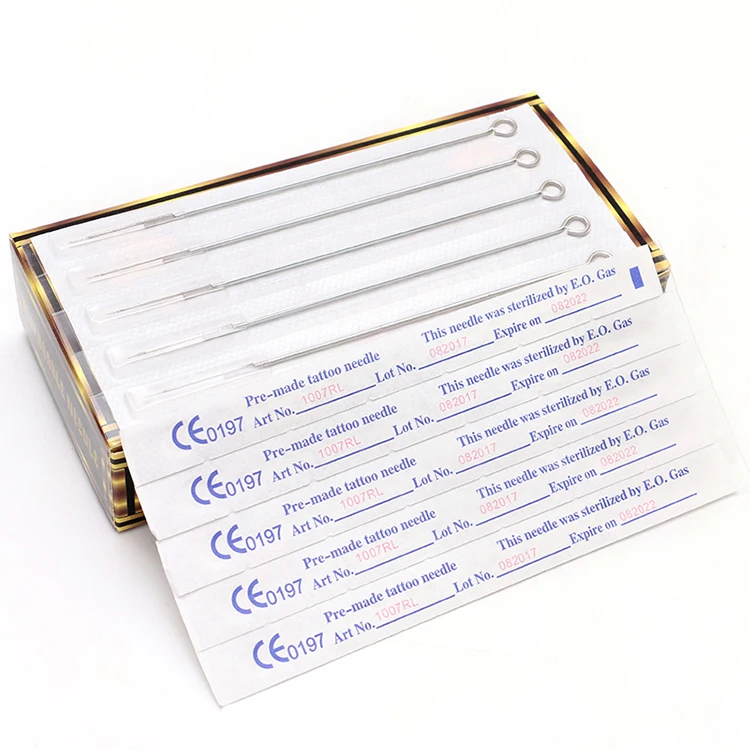 Pre-made tattoo needle This needle was sterilized by E.O. Gas
CE0197 Art No. 1007RL Lot No. 082017 Expire on 082022
Pre-made tattoo needle This needle was sterilized by E.O. Gas
CE0197 Art No. 1007RL Lot No. 082017 Expire on 082022
Pre-made tattoo needle This needle was sterilized by E.O. Gas
CE0197 Art No. 1007RL Lot No. 082017 Expire on 082022
Pre-made tattoo needle This needle was sterilized by E.O. Gas
CE0197 Art No. 1007RL Lot No. 082017 Expire on 082022
Pre-made tattoo needle This needle was sterilized by E.O. Gas
CE0197 Art No. 1007RL Lot No. 082017 Expire on 082022